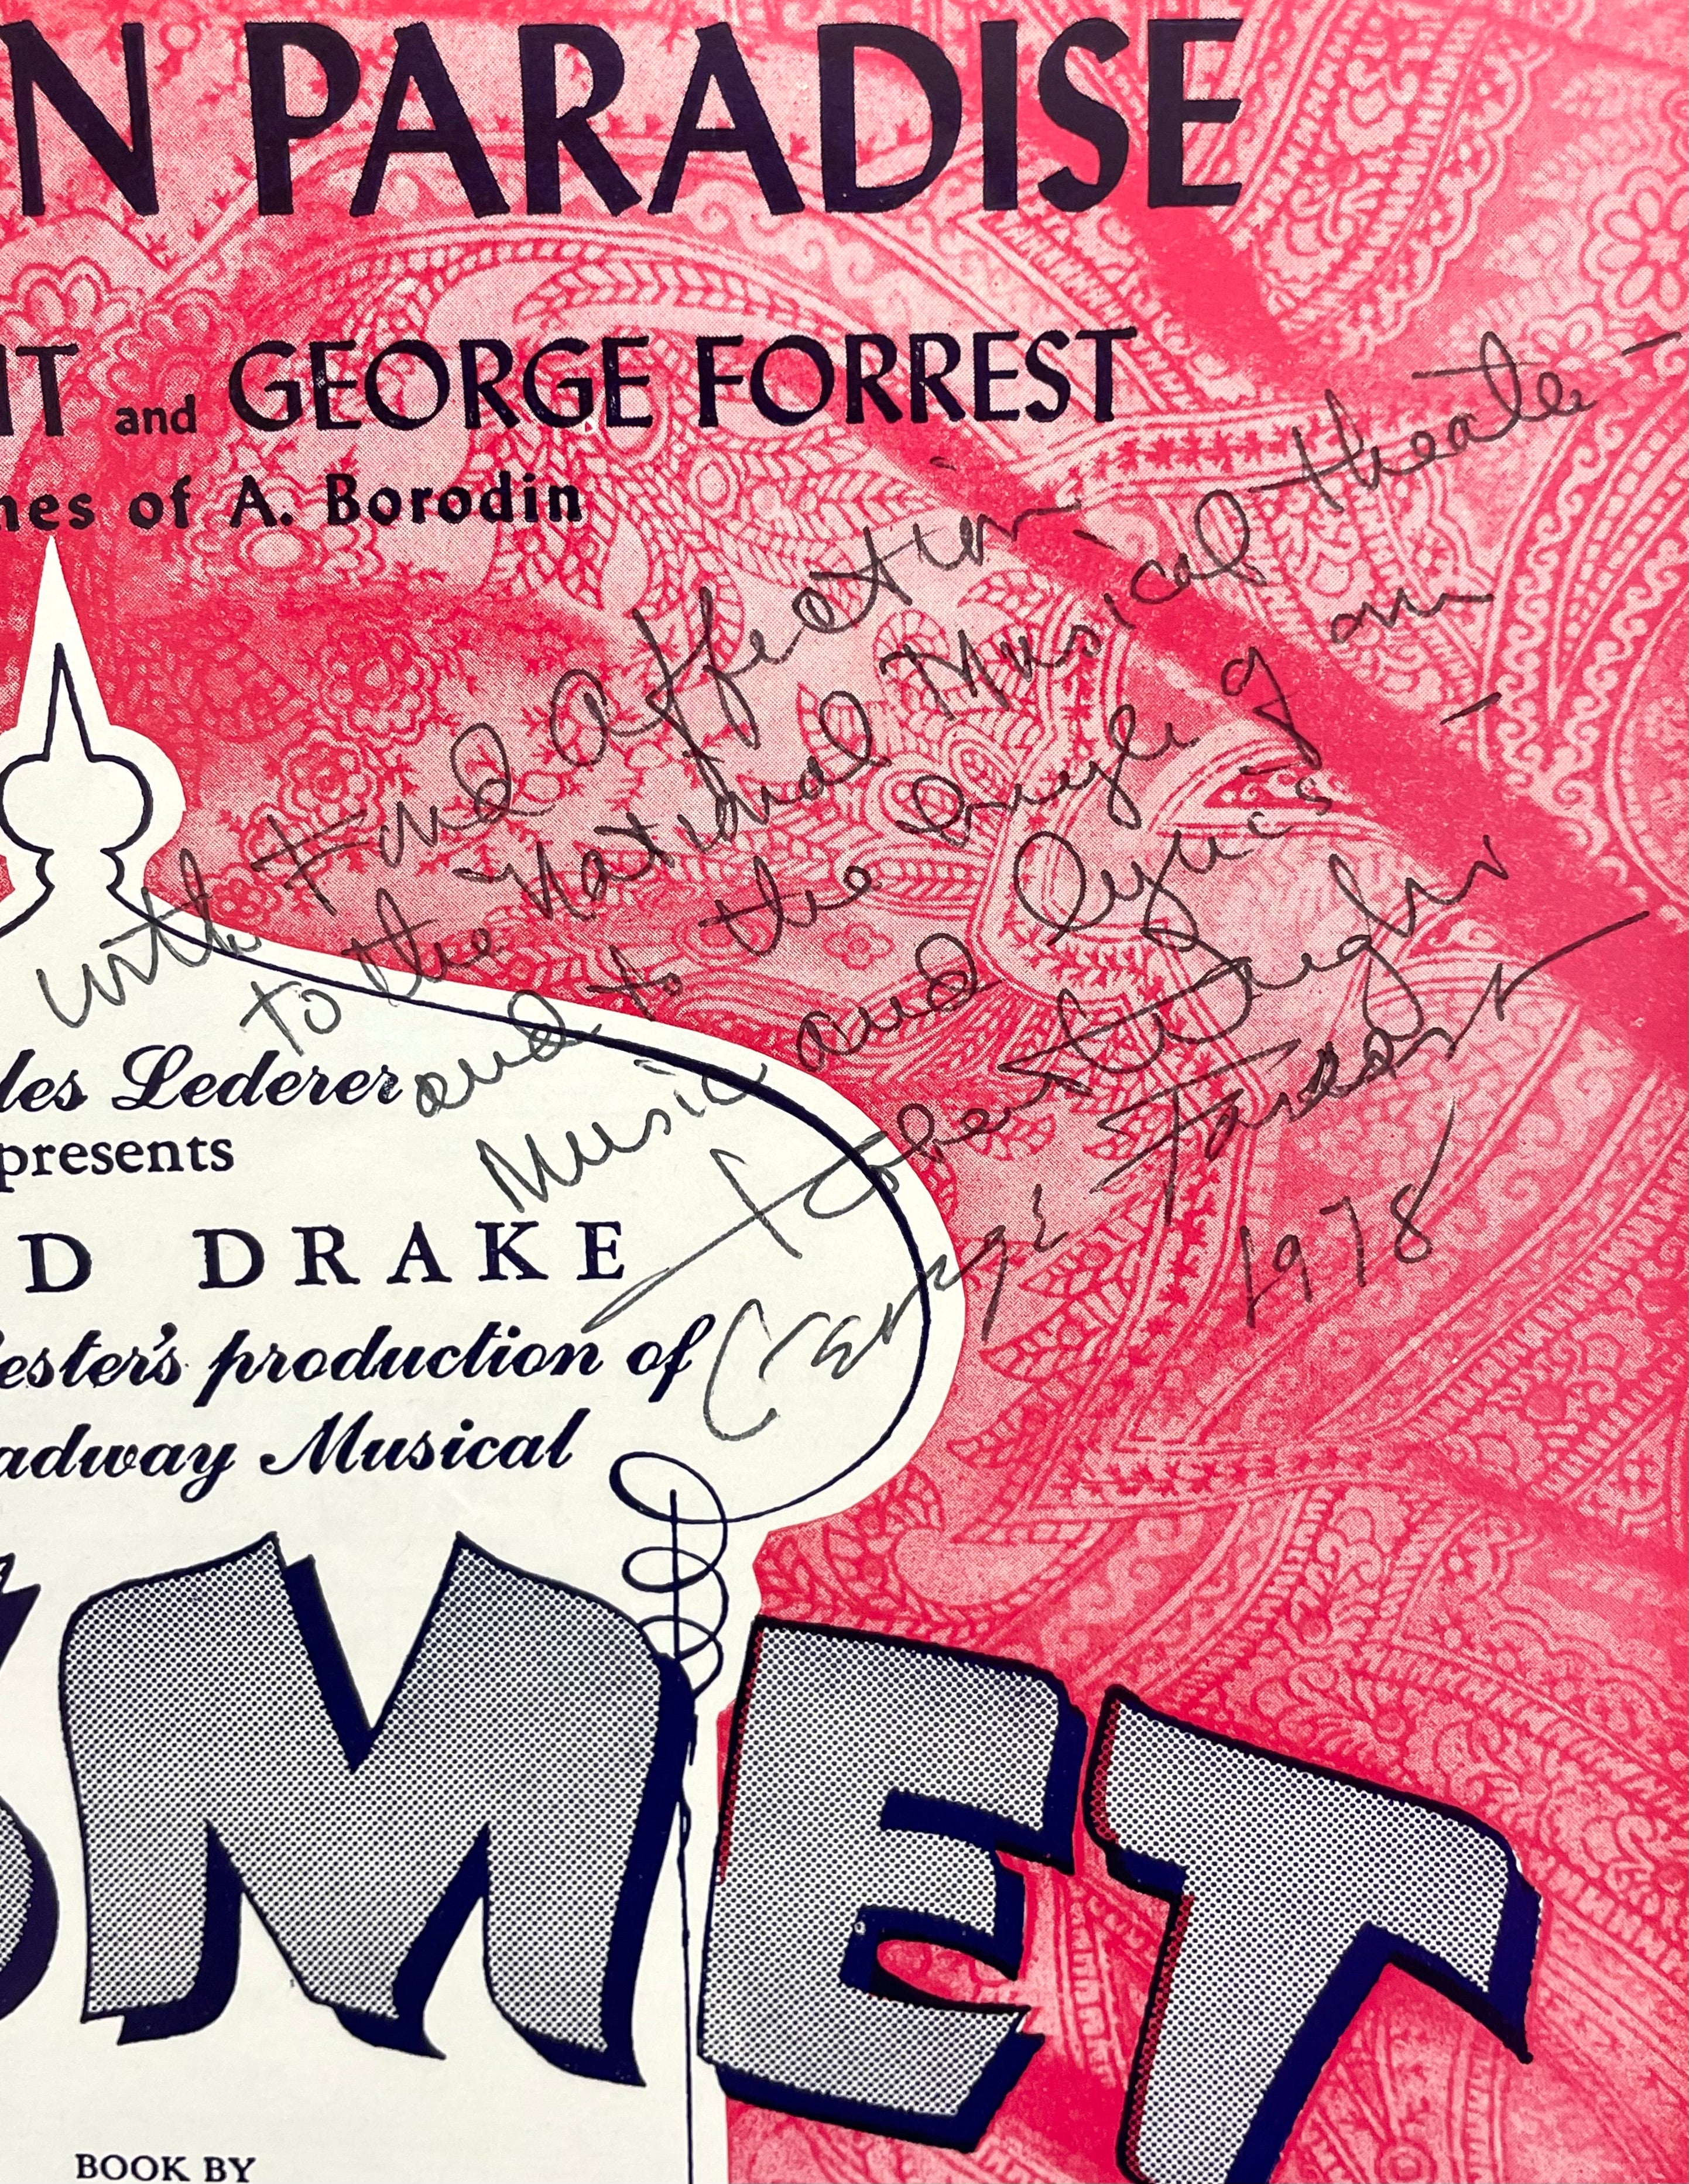 N PARADISE
T and GEORGE FORREST
es of A. Borodin
with Fond Affection
to the National Musical theatre –
and to the of our
Music and lyrics –
Robert Wright
George Forrest
1978
les Lederer
presents
D DRAKE
ester's production of
adway Musical
MET
BOOK BY